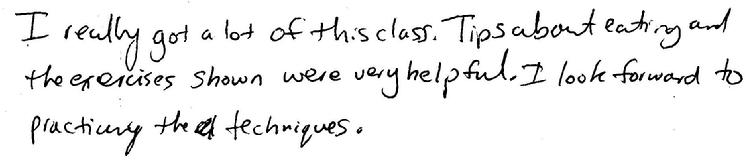 I really got a lot of this class. Tips about eating and
the exercises shown were very helpful. I look forward to
practicing the techniques.